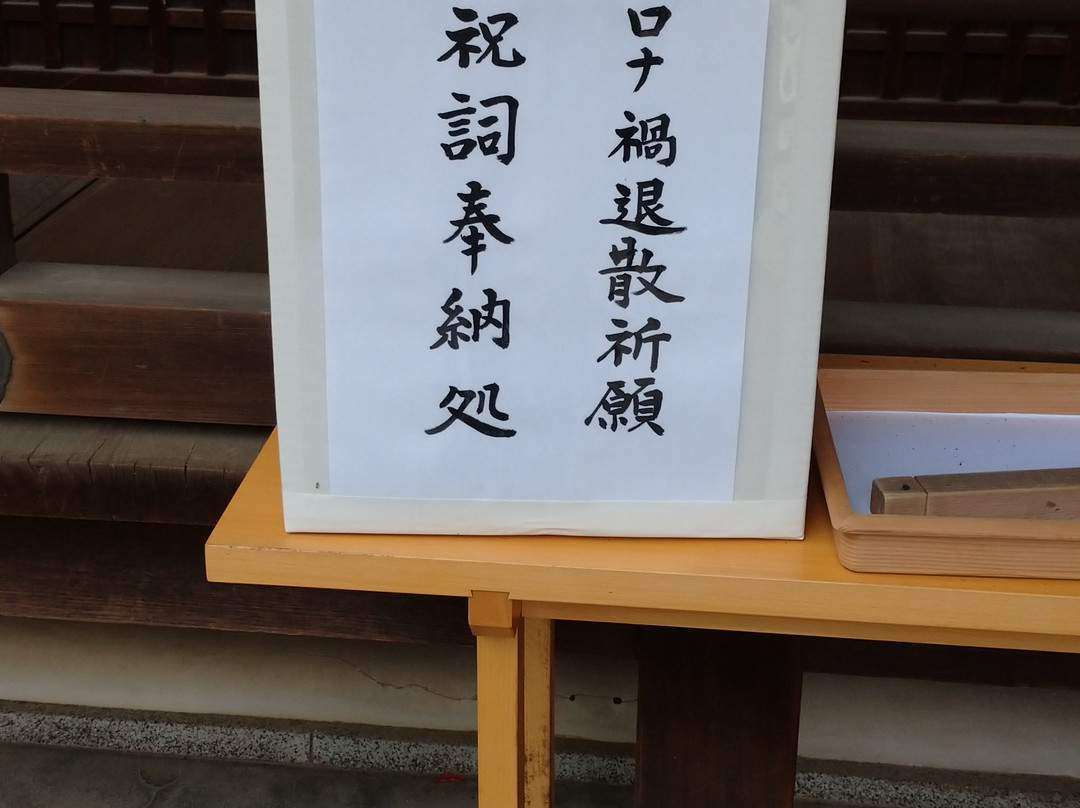 ロナ禍退散祈願
祝詞奉納処